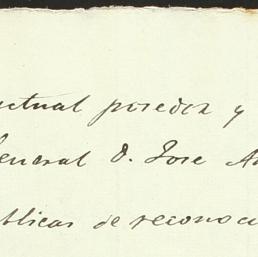 actual poseedor y
General D. Jose
públicas de reconoci